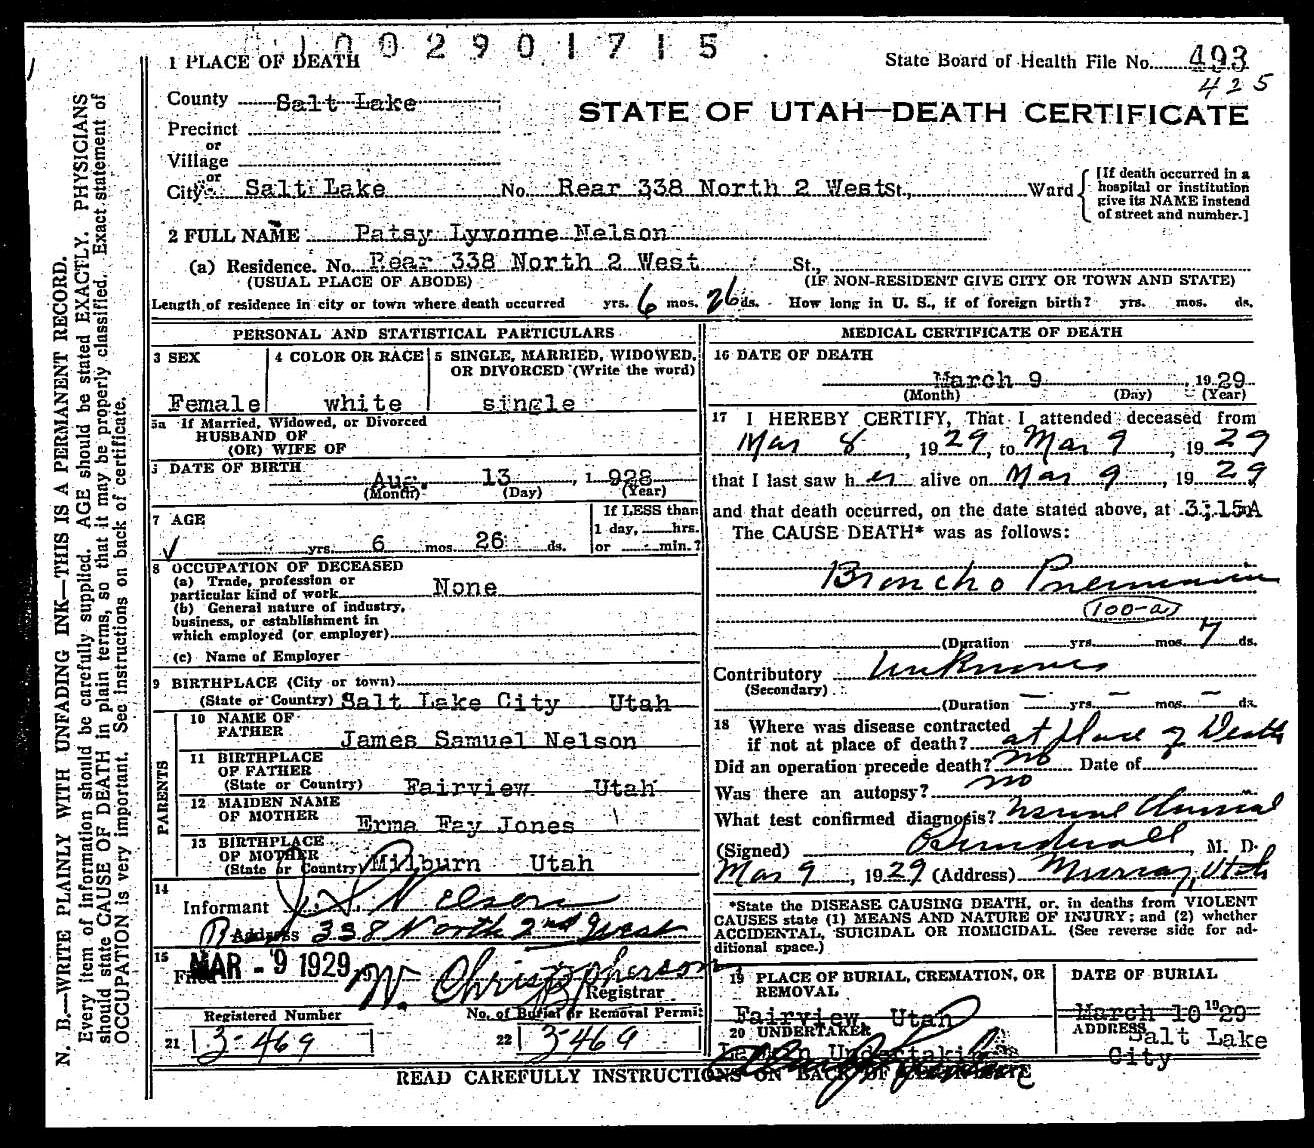 1002901715
1 PLACE OF DEATH
State Board of Health File No. 493
425
County Salt Lake
STATE OF UTAH—DEATH CERTIFICATE
Precinct
or
Village
or
City Salt Lake No. Rear 338 North 2 West St., Ward
[If death occurred in a
hospital or institution
give its NAME instead
of street and number.]
2 FULL NAME Patsy Lyvonne Nelson
(a) Residence. No. Rear 338 North 2 West St.,
(USUAL PLACE OF ABODE) (IF NON-RESIDENT GIVE CITY OR TOWN AND STATE)
Length of residence in city or town where death occurred yrs. 6 mos. 26 ds. How long in U. S., if of foreign birth? yrs. mos. ds.
PERSONAL AND STATISTICAL PARTICULARS
3 SEX
Female
4 COLOR OR RACE
white
5 SINGLE, MARRIED, WIDOWED,
OR DIVORCED (Write the word)
single
5a If Married, Widowed, or Divorced
HUSBAND OF
(OR) WIFE OF
DATE OF BIRTH
Aug. 13, 1928
(Month) (Day) (Year)
7 AGE
yrs. 6 mos. 26 ds.
If LESS than
1 day, hrs.
or min.?
8 OCCUPATION OF DECEASED
(a) Trade, profession or
particular kind of work None
(b) General nature of industry,
business, or establishment in
which employed (or employer)
(c) Name of Employer
9 BIRTHPLACE (City or town)
(State or Country) Salt Lake City Utah
PARENTS
10 NAME OF
FATHER
James Samuel Nelson
11 BIRTHPLACE
OF FATHER
(State or Country) Fairview Utah
12 MAIDEN NAME
OF MOTHER Erma Fay Jones
13 BIRTHPLACE
OF MOTHER
(State or Country) Milburn Utah
14
Informant J. S. Nelson
Address Rear 338 North 2nd West
15
Filed MAR - 9 1929 W. Christopherson
Registrar
Registered Number No. of Burial or Removal Permit
21 3-469 22 3-469
MEDICAL CERTIFICATE OF DEATH
16 DATE OF DEATH
March 9, 1929
(Month) (Day) (Year)
17 I HEREBY CERTIFY, That I attended deceased from
Mar 8, 1929, to Mar 9, 1929
that I last saw her alive on Mar 9, 1929
and that death occurred, on the date stated above, at 3:15A
The CAUSE DEATH* was as follows:
Broncho Pneumonia
100-a
(Duration yrs. mos. 7 ds.
Contributory Unknown
(Secondary)
(Duration — yrs. — mos. — ds.
18 Where was disease contracted
if not at place of death? at place of Death
Did an operation precede death? no Date of
Was there an autopsy? no
What test confirmed diagnosis?
(Signed) , M. D.
Mar 9, 1929 (Address) Murray, Utah
*State the DISEASE CAUSING DEATH, or, in deaths from VIOLENT
CAUSES state (1) MEANS AND NATURE OF INJURY; and (2) whether
ACCIDENTAL, SUICIDAL OR HOMICIDAL. (See reverse side for ad-
ditional space.)
19 PLACE OF BURIAL, CREMATION, OR
REMOVAL
Fairview Utah
DATE OF BURIAL
March 10 1929
20 UNDERTAKER
Undertaking
ADDRESS
Salt Lake
City
READ CAREFULLY INSTRUCTIONS ON BACK OF CERTIFICATE
N. B.—WRITE PLAINLY WITH UNFADING INK—THIS IS A PERMANENT RECORD.
Every item of information should be carefully supplied. AGE should be stated EXACTLY. PHYSICIANS
should state CAUSE OF DEATH in plain terms, so that it may be properly classified. Exact statement of
OCCUPATION is very important. See instructions on back of certificate.